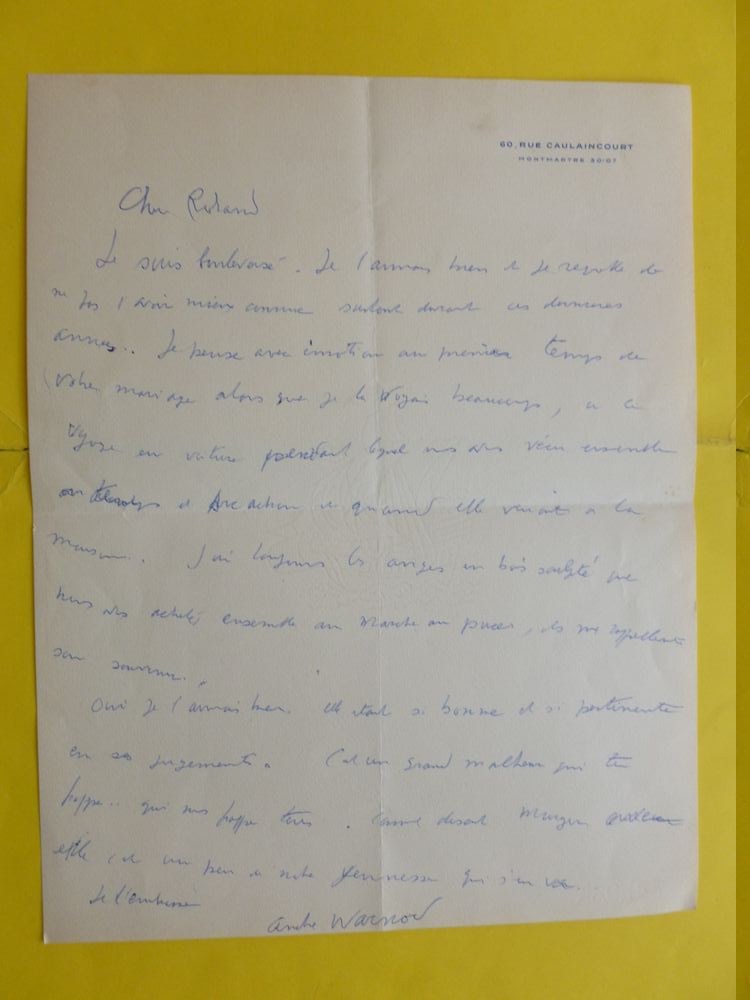 60, RUE CAULAINCOURT
MONTMARTRE 20-07
Cher Roland
Je suis bouleversé. Je l'aimais bien et je regrette de
ne pas l'avoir mieux connue surtout durant ces dernières
années.. Je pense avec émotion au premier temps de
votre mariage alors que je la voyais beaucoup, à ce
voyage en voiture pendant lequel nous avons vécu ensemble
et Arcachon et quand elle venait à la
maison. J'ai toujours les anges en bois sculpté que
nous avons acheté ensemble au Marché au puces, ils me rappellent
son souvenir.
Oui je l'aimais bien. elle était si bonne et si pertinente
en ses jugements. C'est un grand malheur qui te
frappe.. qui nous frappe tous. Comme disait
elle c'est un peu de notre jeunesse qui s'en va..
Je t'embrasse
André Warnod